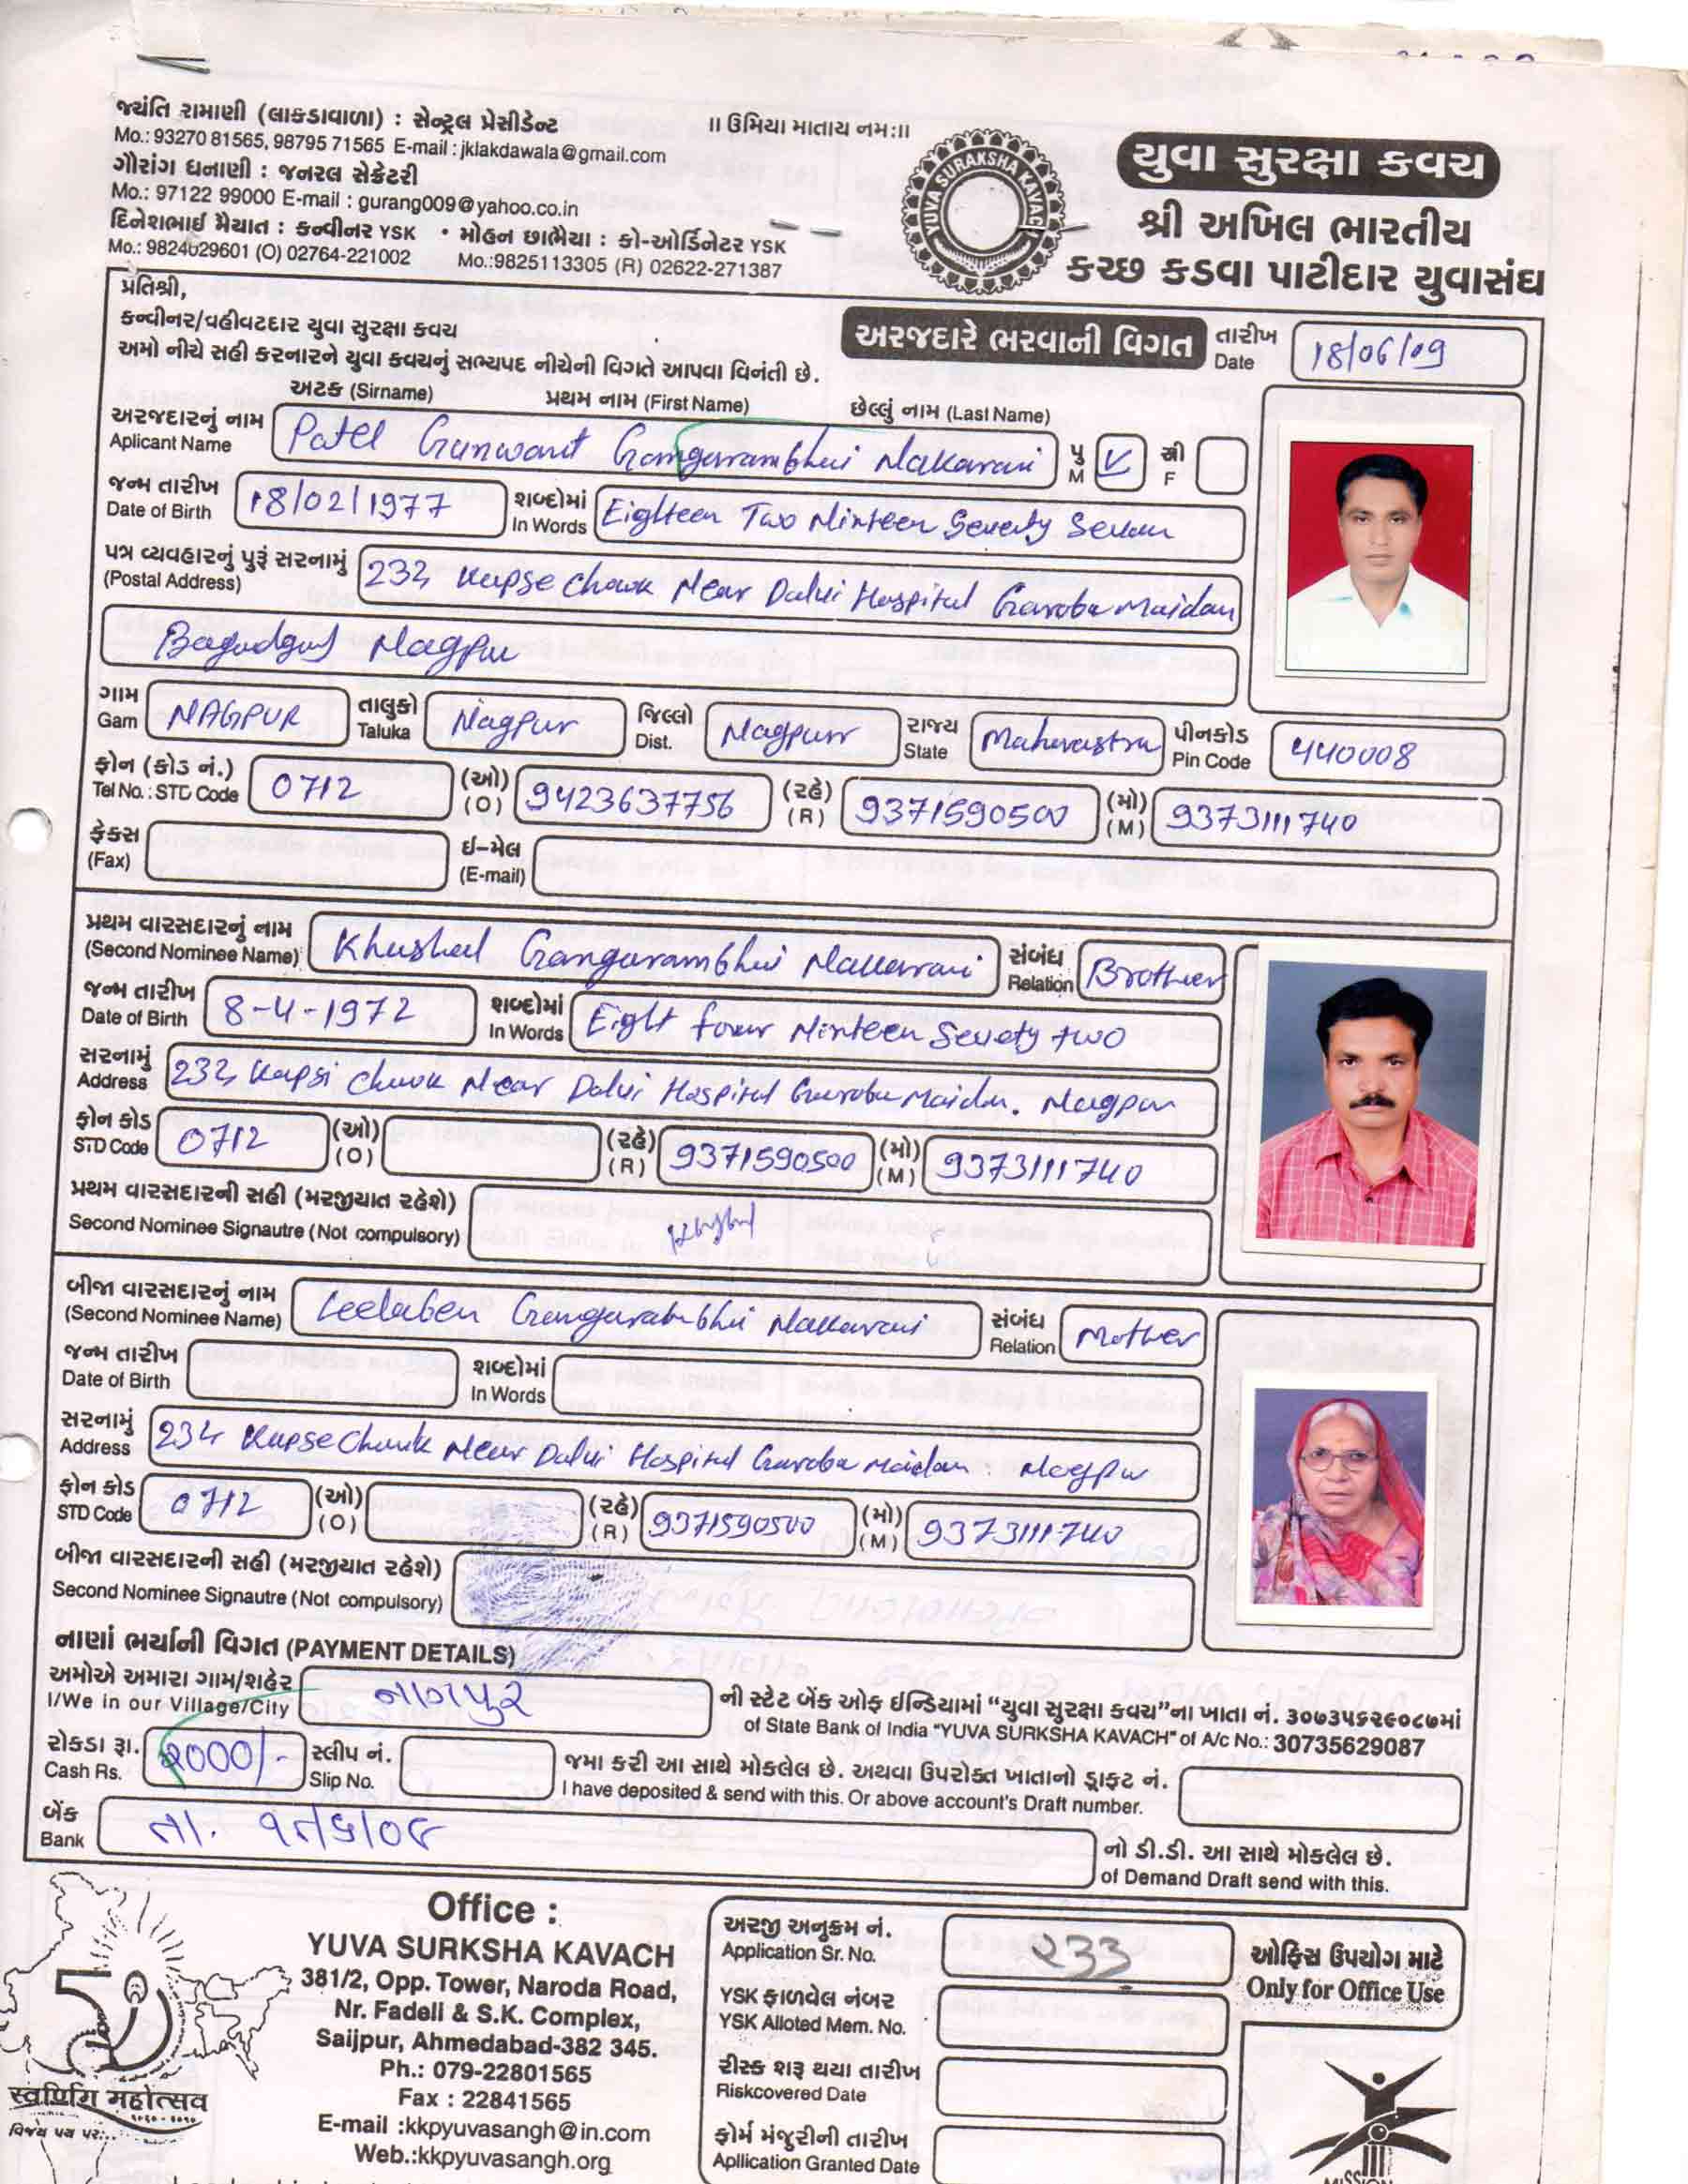 જયંતિ રામાણી (લાકડાવાળા) : સેન્ટ્રલ પ્રેસીડેન્ટ
Mo.: 93270 81565, 98795 71565 E-mail : jklakdawala@gmail.com
ગૌરાંગ ધનાણી : જનરલ સેક્રેટરી
Mo.: 97122 99000 E-mail : gurang009@yahoo.co.in
દિનેશભાઈ મૈયાત : કન્વીનર YSK • મોહન છાભૈયા : કો-ઓર્ડિનેટર YSK
Mo.: 9824029601 (O) 02764-221002 Mo.:9825113305 (R) 02622-271387
॥ ઉમિયા માતાય નમઃ॥
YUVA SURAKSHA KAVACH
યુવા સુરક્ષા કવચ
શ્રી અખિલ ભારતીય
કચ્છ કડવા પાટીદાર યુવાસંઘ
પ્રતિશ્રી,
કન્વીનર/વહીવટદાર યુવા સુરક્ષા કવચ
અમો નીચે સહી કરનારને યુવા કવચનું સભ્યપદ નીચેની વિગતે આપવા વિનંતી છે.
અરજદારે ભરવાની વિગત
તારીખ Date 18/06/09
અટક (Sirname) પ્રથમ નામ (First Name) છેલ્લું નામ (Last Name)
અરજદારનું નામ Aplicant Name Patel Gunwant Gangarambhai Nakarani પુ M ✓ સ્ત્રી F
જન્મ તારીખ Date of Birth 18/02/1977 શબ્દોમાં In Words Eighteen Two Ninteen Seventy Seven
પત્ર વ્યવહારનું પુરૂં સરનામું (Postal Address) 232, Kapse Chowk Near Dalvi Hospital Garoba Maidan
Nagpur
ગામ Gam NAGPUR તાલુકો Taluka Nagpur જિલ્લો Dist. Nagpur રાજ્ય State Maharastra પીનકોડ Pin Code 440008
ફોન (કોડ નં.) Tel No. : STD Code 0712 (ઓ) (O) 9423637756 (રહે) (R) 9371590500 (મો) (M) 9373111740
ફેકસ (Fax) ઈ-મેલ (E-mail)
પ્રથમ વારસદારનું નામ (Second Nominee Name) Khushal Gangarambhai Nakarani સંબંધ Relation Brother
જન્મ તારીખ Date of Birth 8-4-1972 શબ્દોમાં In Words Eight four Ninteen Sevety two
સરનામું Address 232, Kapsi Chowk Near Dalvi Hospital Garoba Maidan. Nagpur
ફોન કોડ STD Code 0712 (ઓ) (O) (રહે) (R) 9371590500 (મો) (M) 9373111740
પ્રથમ વારસદારની સહી (મરજીયાત રહેશે)
Second Nominee Signautre (Not compulsory)
બીજા વારસદારનું નામ (Second Nominee Name) Leelaben Gangarambhai Nakarani સંબંધ Relation Mother
જન્મ તારીખ Date of Birth શબ્દોમાં In Words
સરનામું Address 232, Kapse Chowk Near Dalvi Hospital Garoba Maidan. Nagpur
ફોન કોડ STD Code 0712 (ઓ) (O) (રહે) (R) 9371590500 (મો) (M) 9373111740
બીજા વારસદારની સહી (મરજીયાત રહેશે)
Second Nominee Signautre (Not compulsory)
નાણાં ભર્યાની વિગત (PAYMENT DETAILS)
અમોએ અમારા ગામ/શહેર નાગપુર ની સ્ટેટ બેંક ઓફ ઈન્ડિયામાં “યુવા સુરક્ષા કવચ”ના ખાતા નં. ૩૦૭૩૫૬૨૯૦૮૭માં
I/We in our Village/City of State Bank of India "YUVA SURKSHA KAVACH" of A/c No.: 30735629087
રોકડા રૂા. Cash Rs. 2000/- સ્લીપ નં. Slip No. જમા કરી આ સાથે મોકલેલ છે. અથવા ઉપરોક્ત ખાતાનો ડ્રાફ્ટ નં.
I have deposited & send with this. Or above account's Draft number.
બેંક Bank તા. ૧૮/૬/૦૯ નો ડી.ડી. આ સાથે મોકલેલ છે.
of Demand Draft send with this.
50
સ્વર્ણિમ મહોત્સવ
Office :
YUVA SURKSHA KAVACH
381/2, Opp. Tower, Naroda Road,
Nr. Fadeli & S.K. Complex,
Saijpur, Ahmedabad-382 345.
Ph.: 079-22801565
Fax : 22841565
E-mail :kkpyuvasangh@in.com
Web.:kkpyuvasangh.org
અરજી અનુક્રમ નં. Application Sr. No. ૨33
YSK ફાળવેલ નંબર YSK Alloted Mem. No.
રીસ્ક શરૂ થયા તારીખ Riskcovered Date
ફોર્મ મંજુરીની તારીખ Apllication Granted Date
ઓફિસ ઉપયોગ માટે
Only for Office Use
MISSION